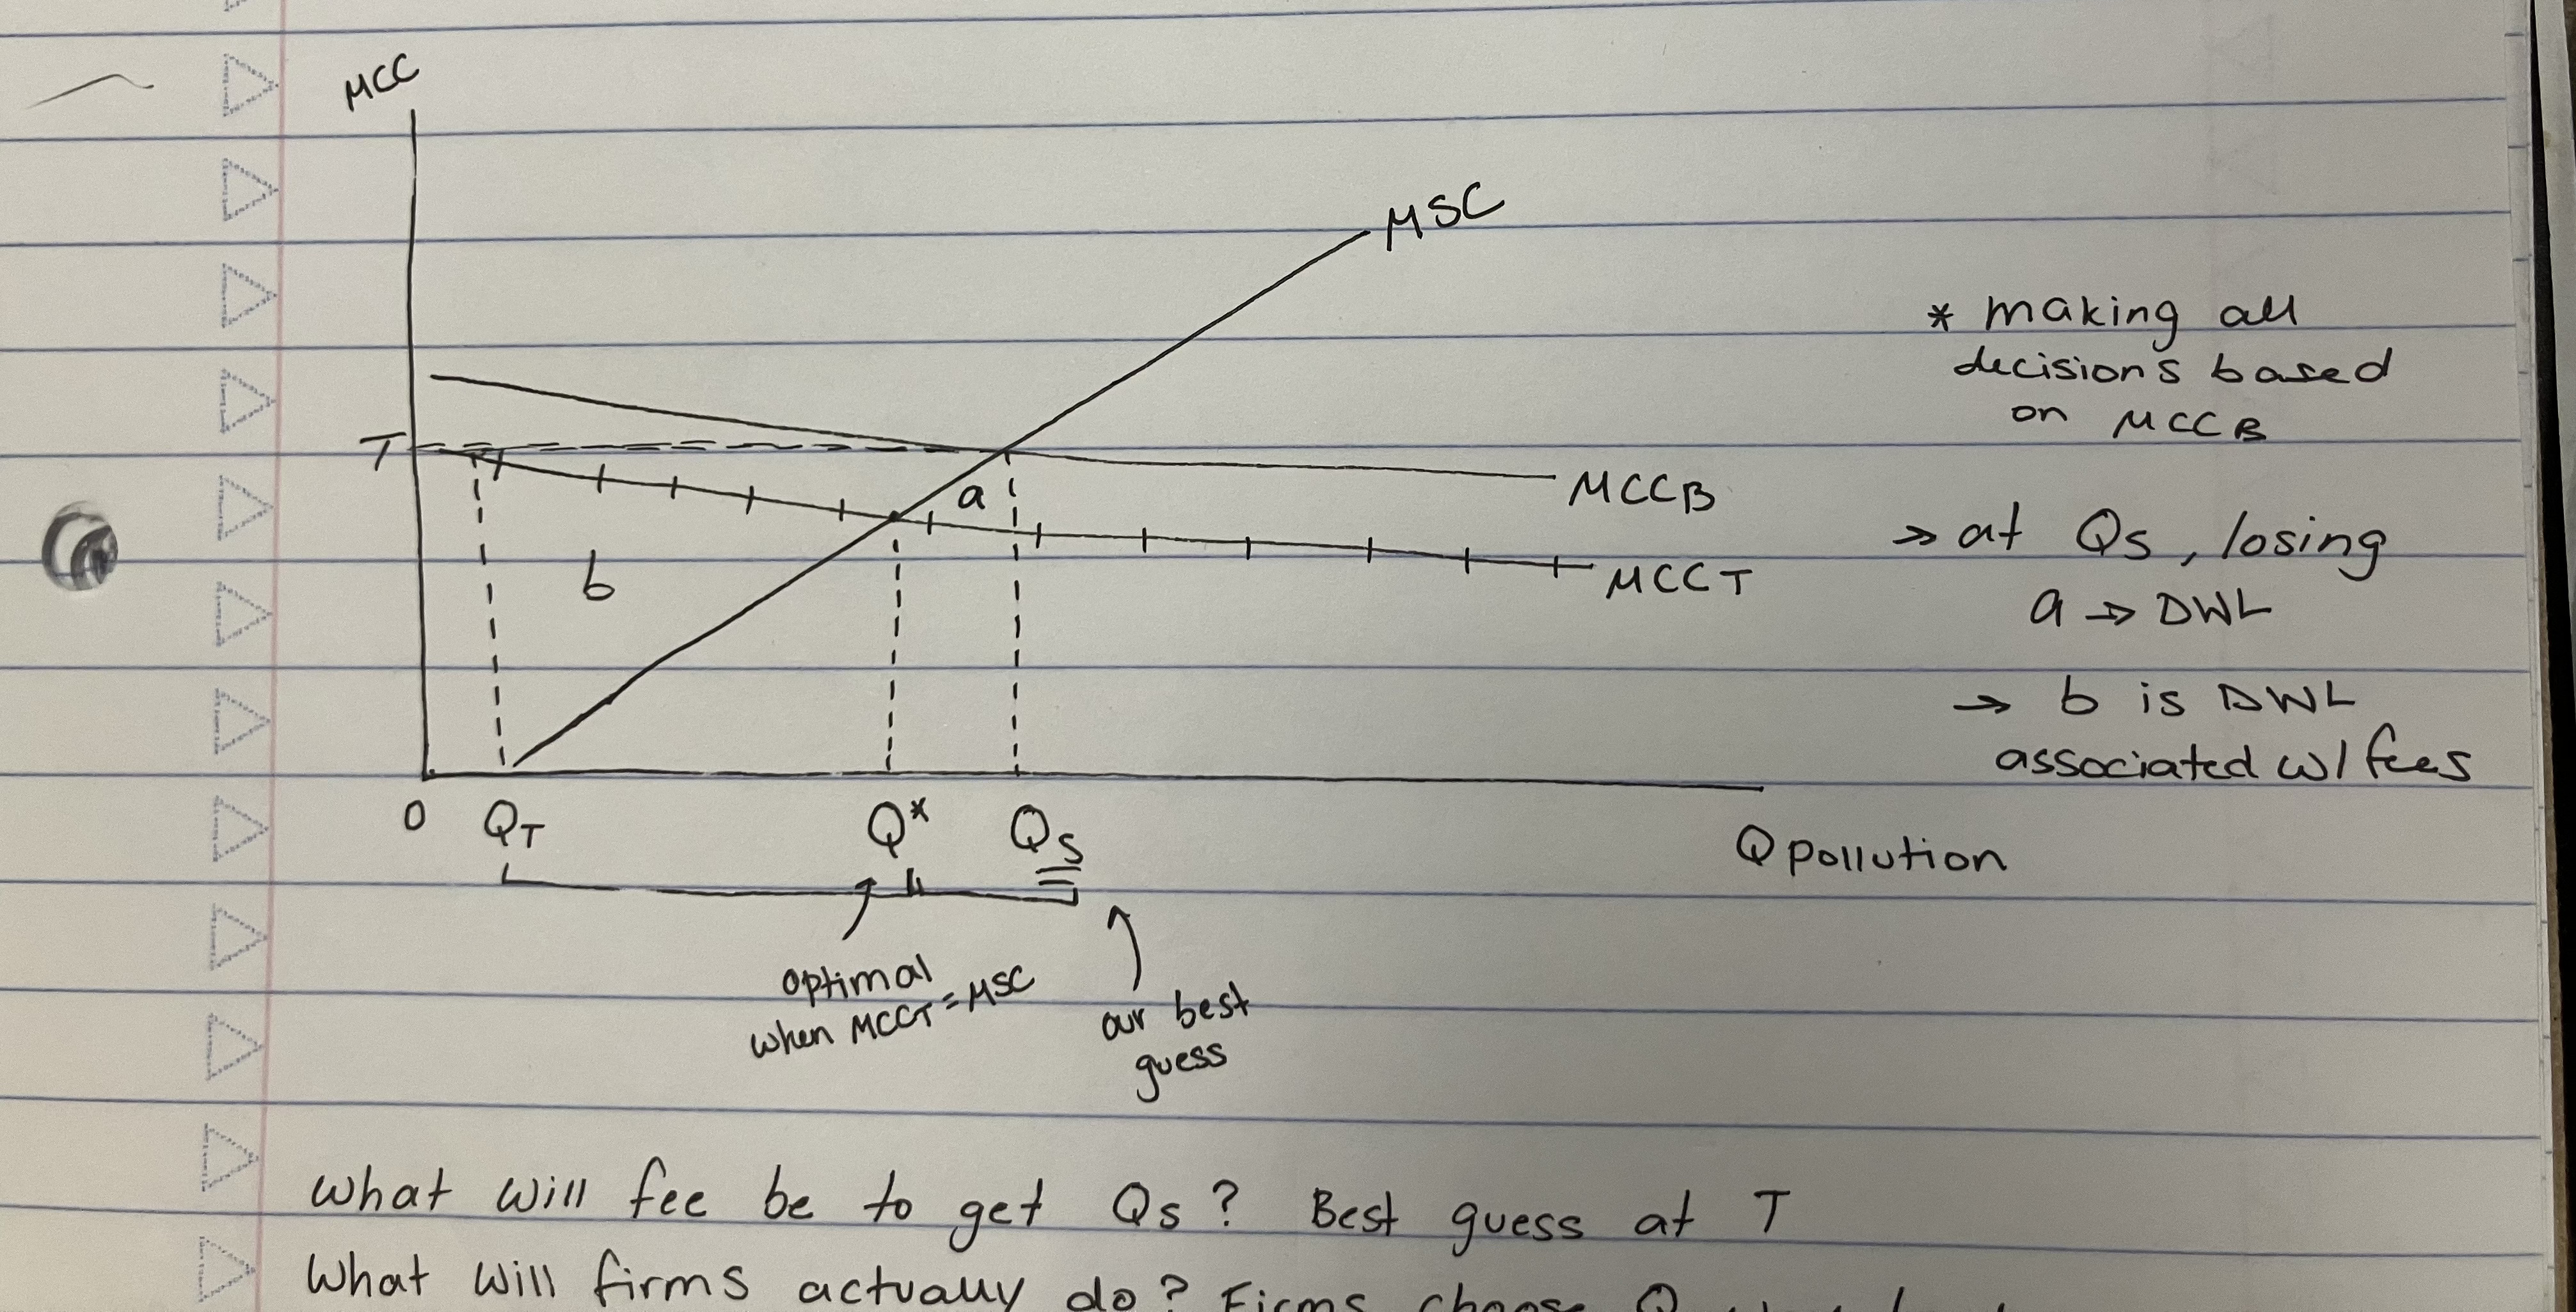 MCC
MSC
* making all
decisions based
on MCCB
T
a
MCCB
b
MCCT
→ at Qs, losing
a → DWL
→ b is DWL
associated w/ fees
0 QT Q* Qs
Q pollution
optimal
when MCCT = MSC
our best
guess
What will fee be to get Qs? Best guess at T
What will firms actually do? Firms choose Q